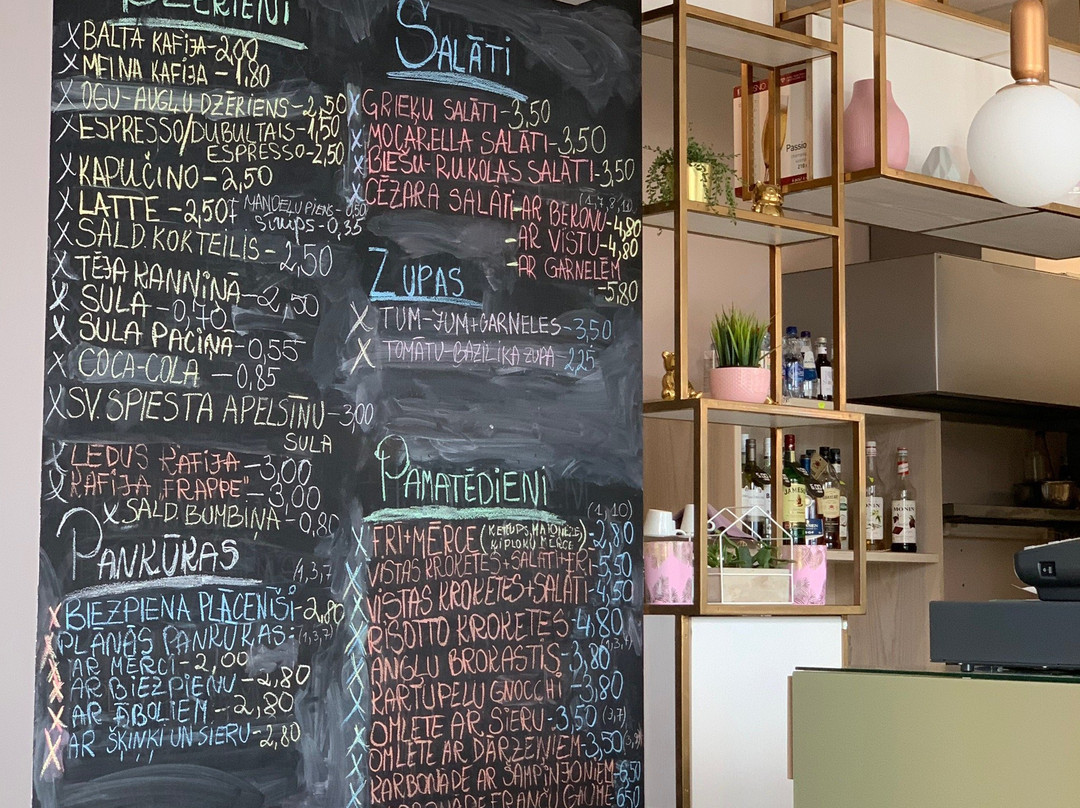 DZĒRIENI
X BALTA KAFIJA-2,00
X MELNA KAFIJA-1,80
X OGU-AUGĻU DZĒRIENS-2,50
X ESPRESSO/DUBULTAIS-1,50
ESPRESSO-2,50
X KAPUČINO-2,50
X LATTE-2,50+ MANDEĻU PIENS-0,50
SĪRUPS-0,35
X SALD. KOKTEILIS-2,50
X TĒJA KANNIŅĀ-2,50
X SULA-0,70
X SULA PACIŅĀ-0,55
X COCA-COLA-0,85
X SV. SPIESTA APELSĪNU-3,00
SULA
X LEDUS KAFIJA-3,00
X KAFIJA "FRAPPE"-3,00
X SALD. BUMBIŅA-0,80
PANKŪKAS
(1,3,7)
X BIEZPIENA PLĀCENĪŠI-2,80
PLĀNĀS PANKŪKAS: (1,3,7)
X AR MĒRCI-2,00
X AR BIEZPIENU-2,80
X AR ĀBOLIEM-2,80
X AR ŠĶIŅĶI UN SIERU-2,80
SALĀTI
X GRIEĶU SALĀTI-3,50
X MOCARELLA SALĀTI-3,50
X BIEŠU-RUKOLAS SALĀTI-3,50
X CĒZARA SALĀTI-AR BEKONU-4,80
-AR VISTU-4,80
-AR GARNELĒM
-5,80
ZUPAS
X TUM-JUM+GARNELES-3,50
X TOMĀTU-BAZILIKA ZUPA 2,25
PAMATĒDIENI
(1,10)
X FRĪ+MĒRCE (KEČUPS, MAJONĒZE, ĶIPLOKU MĒRCE)-2,80
X VISTAS KROKETES+SALĀTI+FRĪ-5,50
X VISTAS KROKETES+SALĀTI-4,50
X RISOTTO KROKETES-4,80
X ANGĻU BROKASTIS-3,80
X KARTUPEĻU GNOCCHI-3,80
X OMLETE AR SIERU-3,50 (3,7)
X OMLETE AR DĀRZEŅIEM-3,50
X KARBONĀDE AR ŠAMPINJONIEM-6,50
KARBONĀDE FRANČU GAUMĒ-6,50
Passio
JAMESON
MONIN